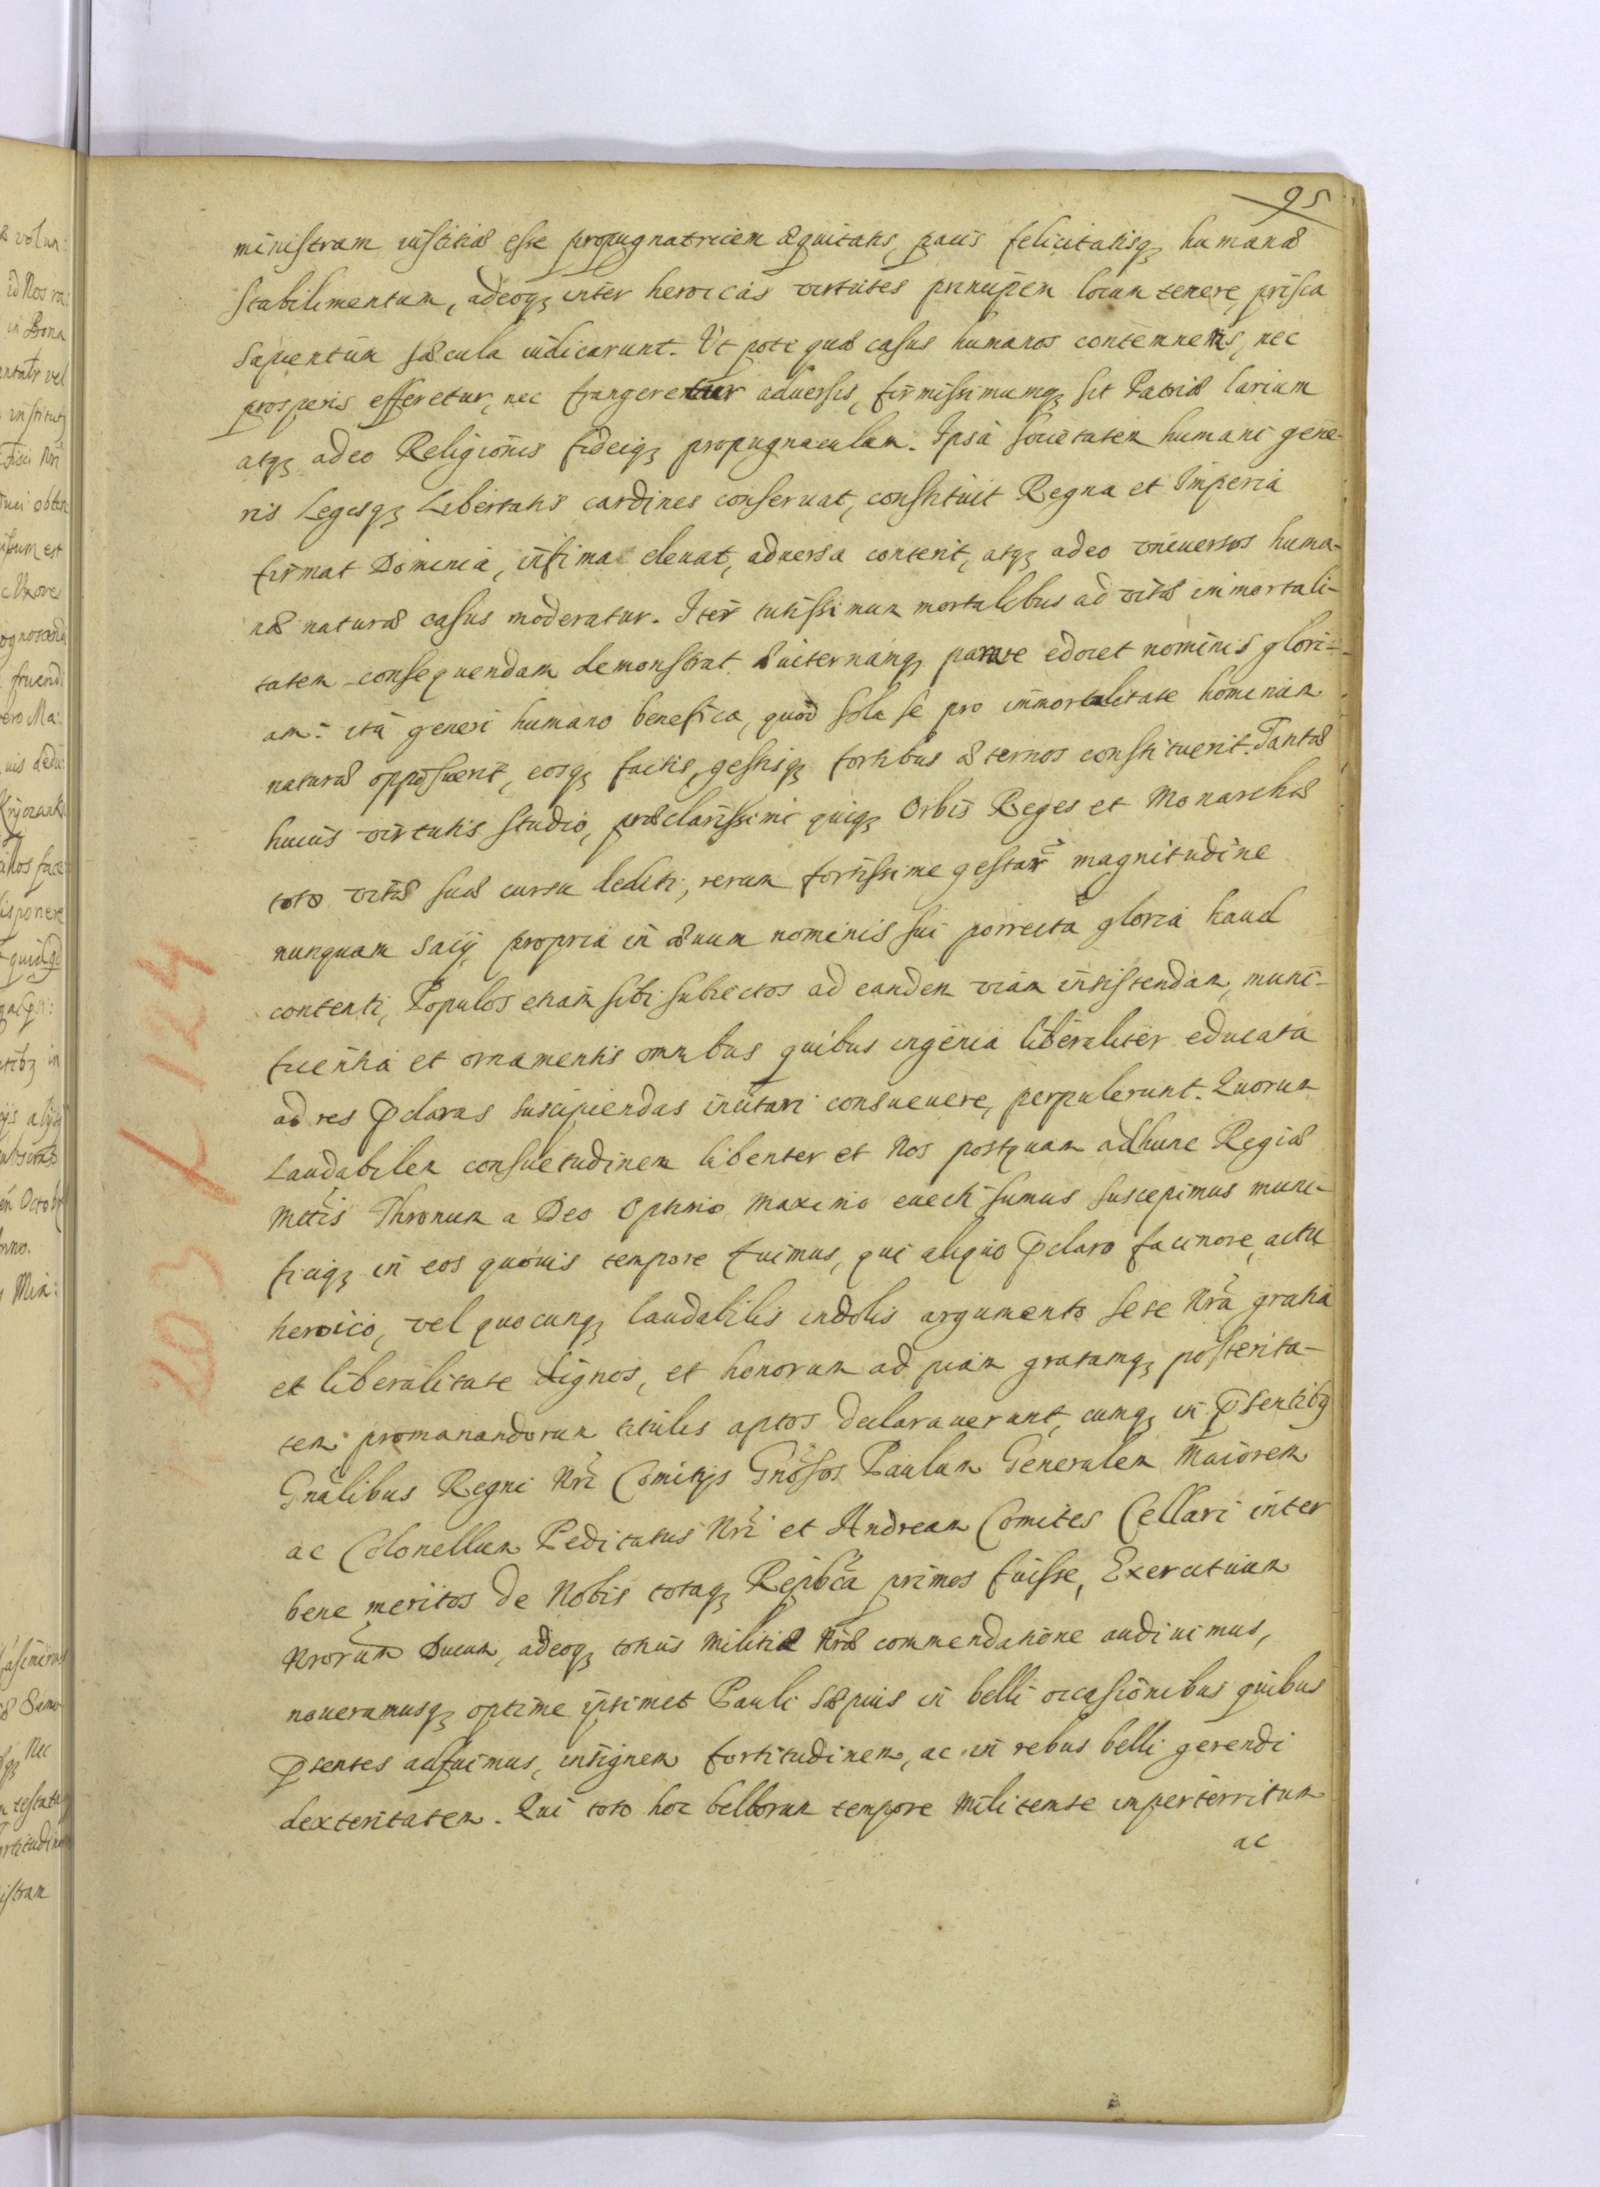 95
ministram iustitiæ esse propugnatricem æquitatis, pacis felicitatisq₃ humanæ
stabilimentum, adeoq₃ inter heroicas virtutes principem locum tenere, prisca
sapientum sæcula iudicarunt. Ut pote quæ casus humanos contemnens, nec
prosperis efferetur, nec frangeretur aduersis, firmissimumq₃ sit Patriæ larium
atq₃ adeo Religionis fideiq₃ propugnaculum. Ipsa societatem humani gene-
ris Legesq₃ Libertatis cardines conseruat, constituit Regna et Imperia
firmat Dominia, infima eleuat, aduersa conterit, atq₃ adeo vniuersos huma-
næ naturæ casus moderatur. Iter tutissimum mortalibus ad vitæ immortali-
tatem consequendam demonstrat æuiternamq₃ parare edocet nominis glori-
am: ita generi humano benefica, quod sola se pro immortalitate hominum
naturæ opposuerit, eosq₃ factis, gestisq₃ fortibus æternos constituerit. Tantæ
huius virtutis studio, præclarissimi quiq₃ Orbis Reges et Monarchæ
toto vitæ suæ cursu dediti, rerum fortissime gestar magnitudine
nunquam sacij propria in æuum nominis sui porrecta gloria haud
contenti, Populos etiam sibi subiectos ad eandem viam insistendam, muni-
ficentia et ornamentis omnibus quibus ingenia liberaliter educata
ad res p̄claras suscipiendas incitari consueuere, perpulerunt. Quorum
Laudabilem consuetudinem libenter et Nos postquam ad hunc Regiæ
Mttis Thronum a Deo Optimo Maximo euecti sumus suscepimus muni-
ficiq₃ in eos quouis tempore fuimus, qui aliquo p̄claro facinore, actu
heroico, vel quocunq₃ laudabilis indolis argumento sese Nrã gratia
et liberalitate dignos, et honorum ad piam gratamq₃ posterita-
tem promanandorum titulis aptos declarauerunt, cumq₃ in p̄sentibg
Gnãlibus Regni Nri Comitijs Gnosos Paulum Generalem Maiorem
ac Colonellum Peditatus Nri et Andream Comites Cellari inter
bene meritos de Nobis totaq₃ Reipbca primos fuisse, Exercituum
Nrorum Ducum, adeoq₃ totius Militiæ Nræ commendatione audiuimus,
noueramusq₃ optime ipsimet Pauli sæpius in belli occasionibus quibus
p̄sentes adfuimus, insignem fortitudinem, ac in rebus belli gerendi
dexteritatem. Qui toto hoc bellorum tempore Militem se imperterritum
ac